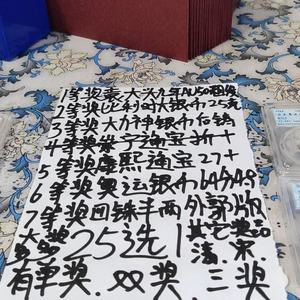 1等奖袁大头九年AU50两枚
2等奖比利时大银币25克
3等奖大力神银币后铸
4等奖景子通宝折十
5等奖康熙通宝27+
6等奖奥运银币
7等奖四铢半两外郭版
大奖 25选1 其它奖20
清.宋.
有单奖.双奖.三奖